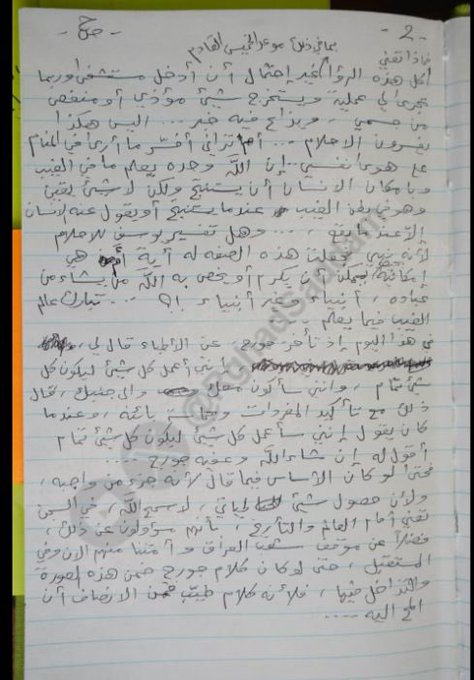 - 2 -
بما في ذلك موعد الخميس القادم
ماذا تعني
كل هذه الرؤيا غير احتمال أن أدخل مستشفى وربما
تجرى لي عملية ويستخرج شيئ مؤذي أو منغص
من جسمي .. ويذاع فيه خبر ... اليس هكذا
يفسرون الاحلام ... أم تراني أفسّر ما أرى في المنام
ع هوى نفسي .. إن اللّه وحده يعلم ما في الغيب
وبامكان الانسان أن يستنتج ولكن لا شيئ يقيني
وهو في بطن الغيب عندما يستنتج أو يقول عنه إنسان
إلا عندما يقع ... وهل تفسير يوسف للاحلام
لأنه نبي جعلت هذه الصفه له آية أم هي
إمكانية يمكن أن يكرم أو يخص به اللّه من يشاء من
عباده ، أنبياء وغير أنبياء !؟ ... تبارك عالم
الغيب فيما يعلم
في هذا اليوم إذ تأخر جورج ، عن الأطباء قال لي ،
إنني أعمل كل شيئ ليكون كل
شيئ تمام ، وانني سأكون معك والى جنبك ، قال
ذلك مع تأكيد المفردات وبأنه ، وعندما
كان يقول إنني سأعمل كل شيئ ليكون كل شيئ تمام
أقول له إن شاء اللّه وعفيه جورج ...
فحتى لو كان الأساس فيما قال لأنه جزء من واجبه ،
ولأن حصول شيئ لحياتي ، لا سمح اللّه ، في السجن
تعني أمام العالم والتأريخ ، بأنهم مسؤولون عن ذلك ،
فضلاً عن موقف شعب العراق وأمتنا منهم الآن وفي
المستقبل ، حتى لو كان كلام جورج ضمن هذه الصورة
والتداخل فيها ، فلأنه كلام طيب فمن الانصاف أن
المح اليه ....
@RghadSaddam